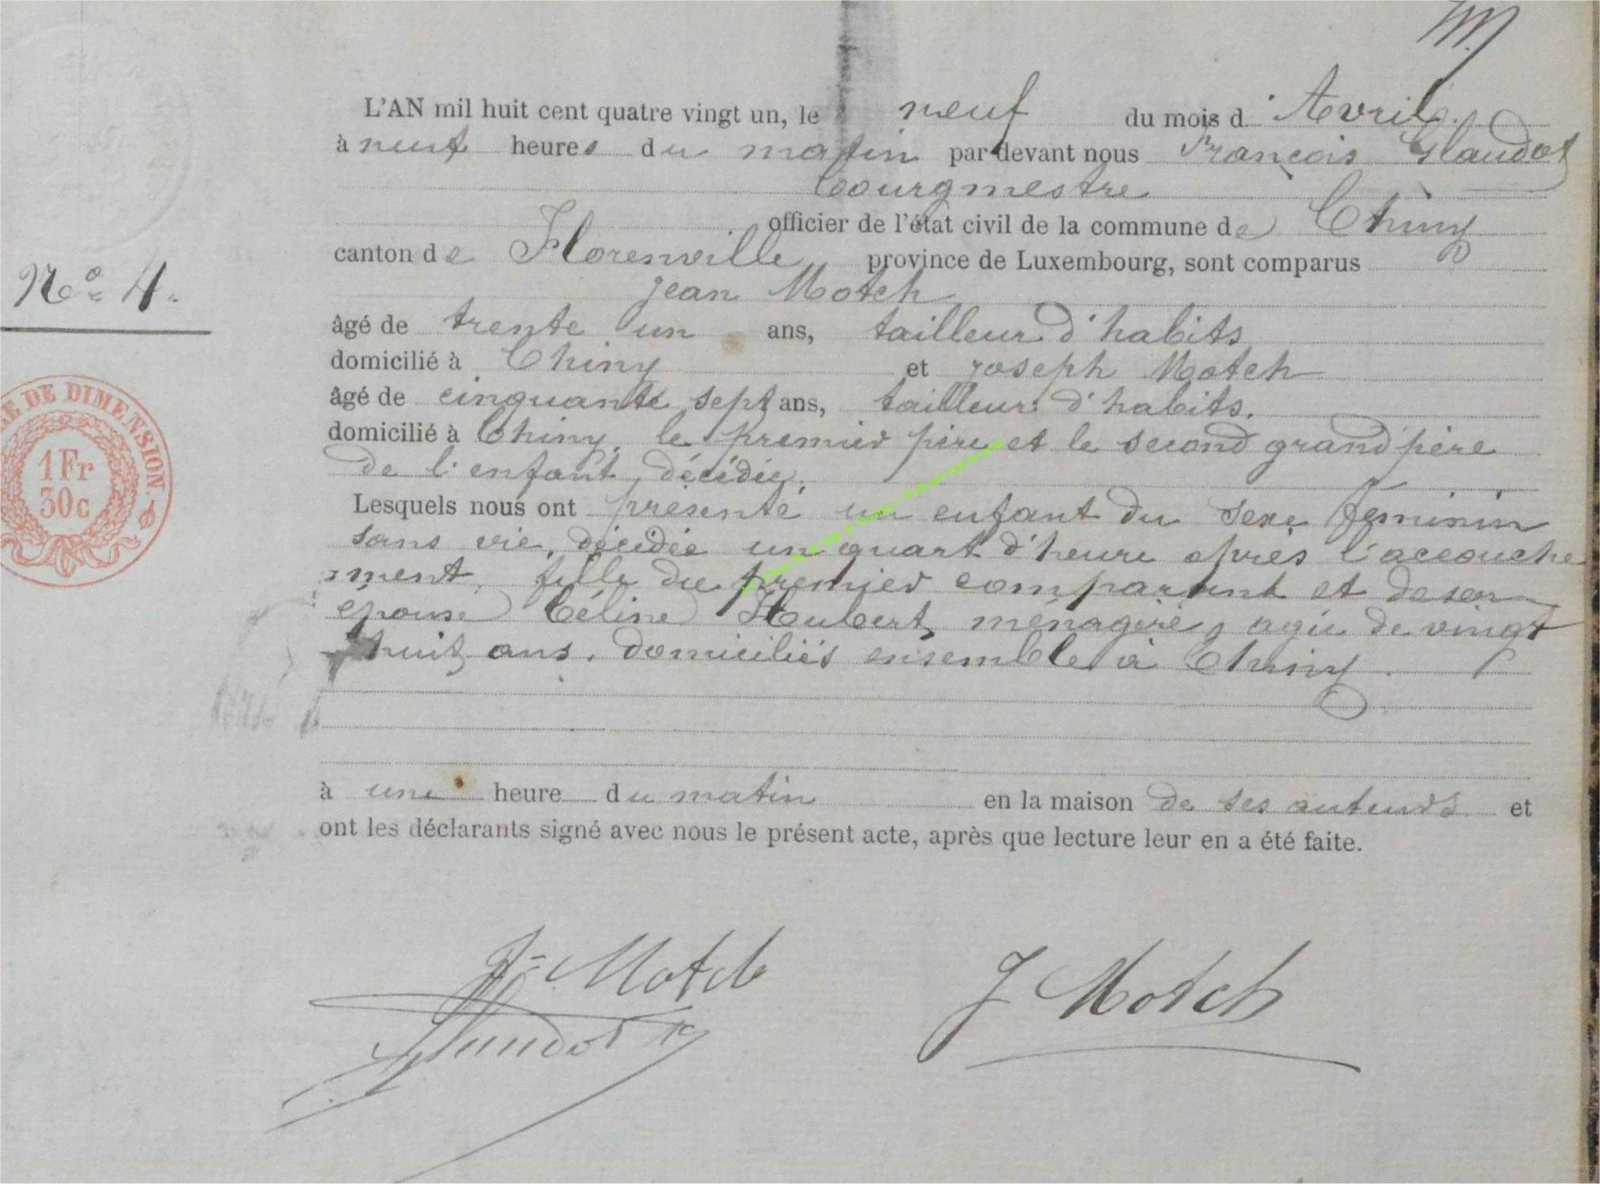 L'AN mil huit cent quatre vingt un, le neuf du mois d'Avril
à neuf heures du matin par devant nous François Glaudot
bourgmestre
officier de l'état civil de la commune de Chiny
canton de Florenville province de Luxembourg, sont comparus
N° 4.
jean Motch
âgé de trente un ans, tailleur d'habits
domicilié à Chiny et joseph Motch
âgé de cinquante sept ans, tailleur d'habits.
domicilié à Chiny, le premier père et le second grand père
de l'enfant décédée.
RE DE DIMENSION
1Fr
30c
Lesquels nous ont présenté un enfant du sexe féminin
sans vie, décédée un quart d'heure après l'accouche
ment, fille du premier comparant et de son
épouse Céline Hubert, ménagère, agée de vingt
huit ans, domiciliés ensemble à Chiny.
à une heure du matin en la maison de ses auteurs et
ont les déclarants signé avec nous le présent acte, après que lecture leur en a été faite.
Jn Motch
J Motch
Glaudot